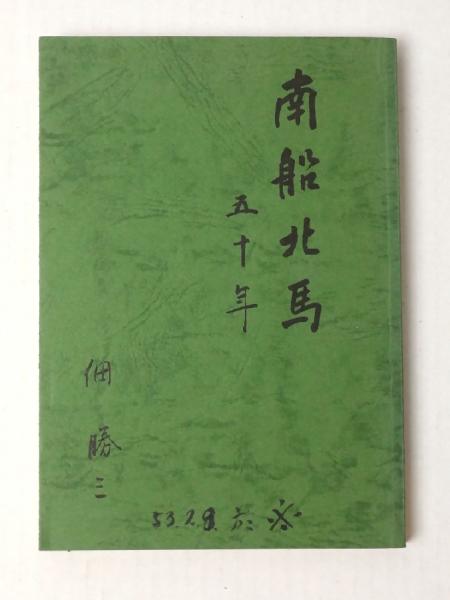 南船北馬
五十年
佃 勝三
53.2.8.